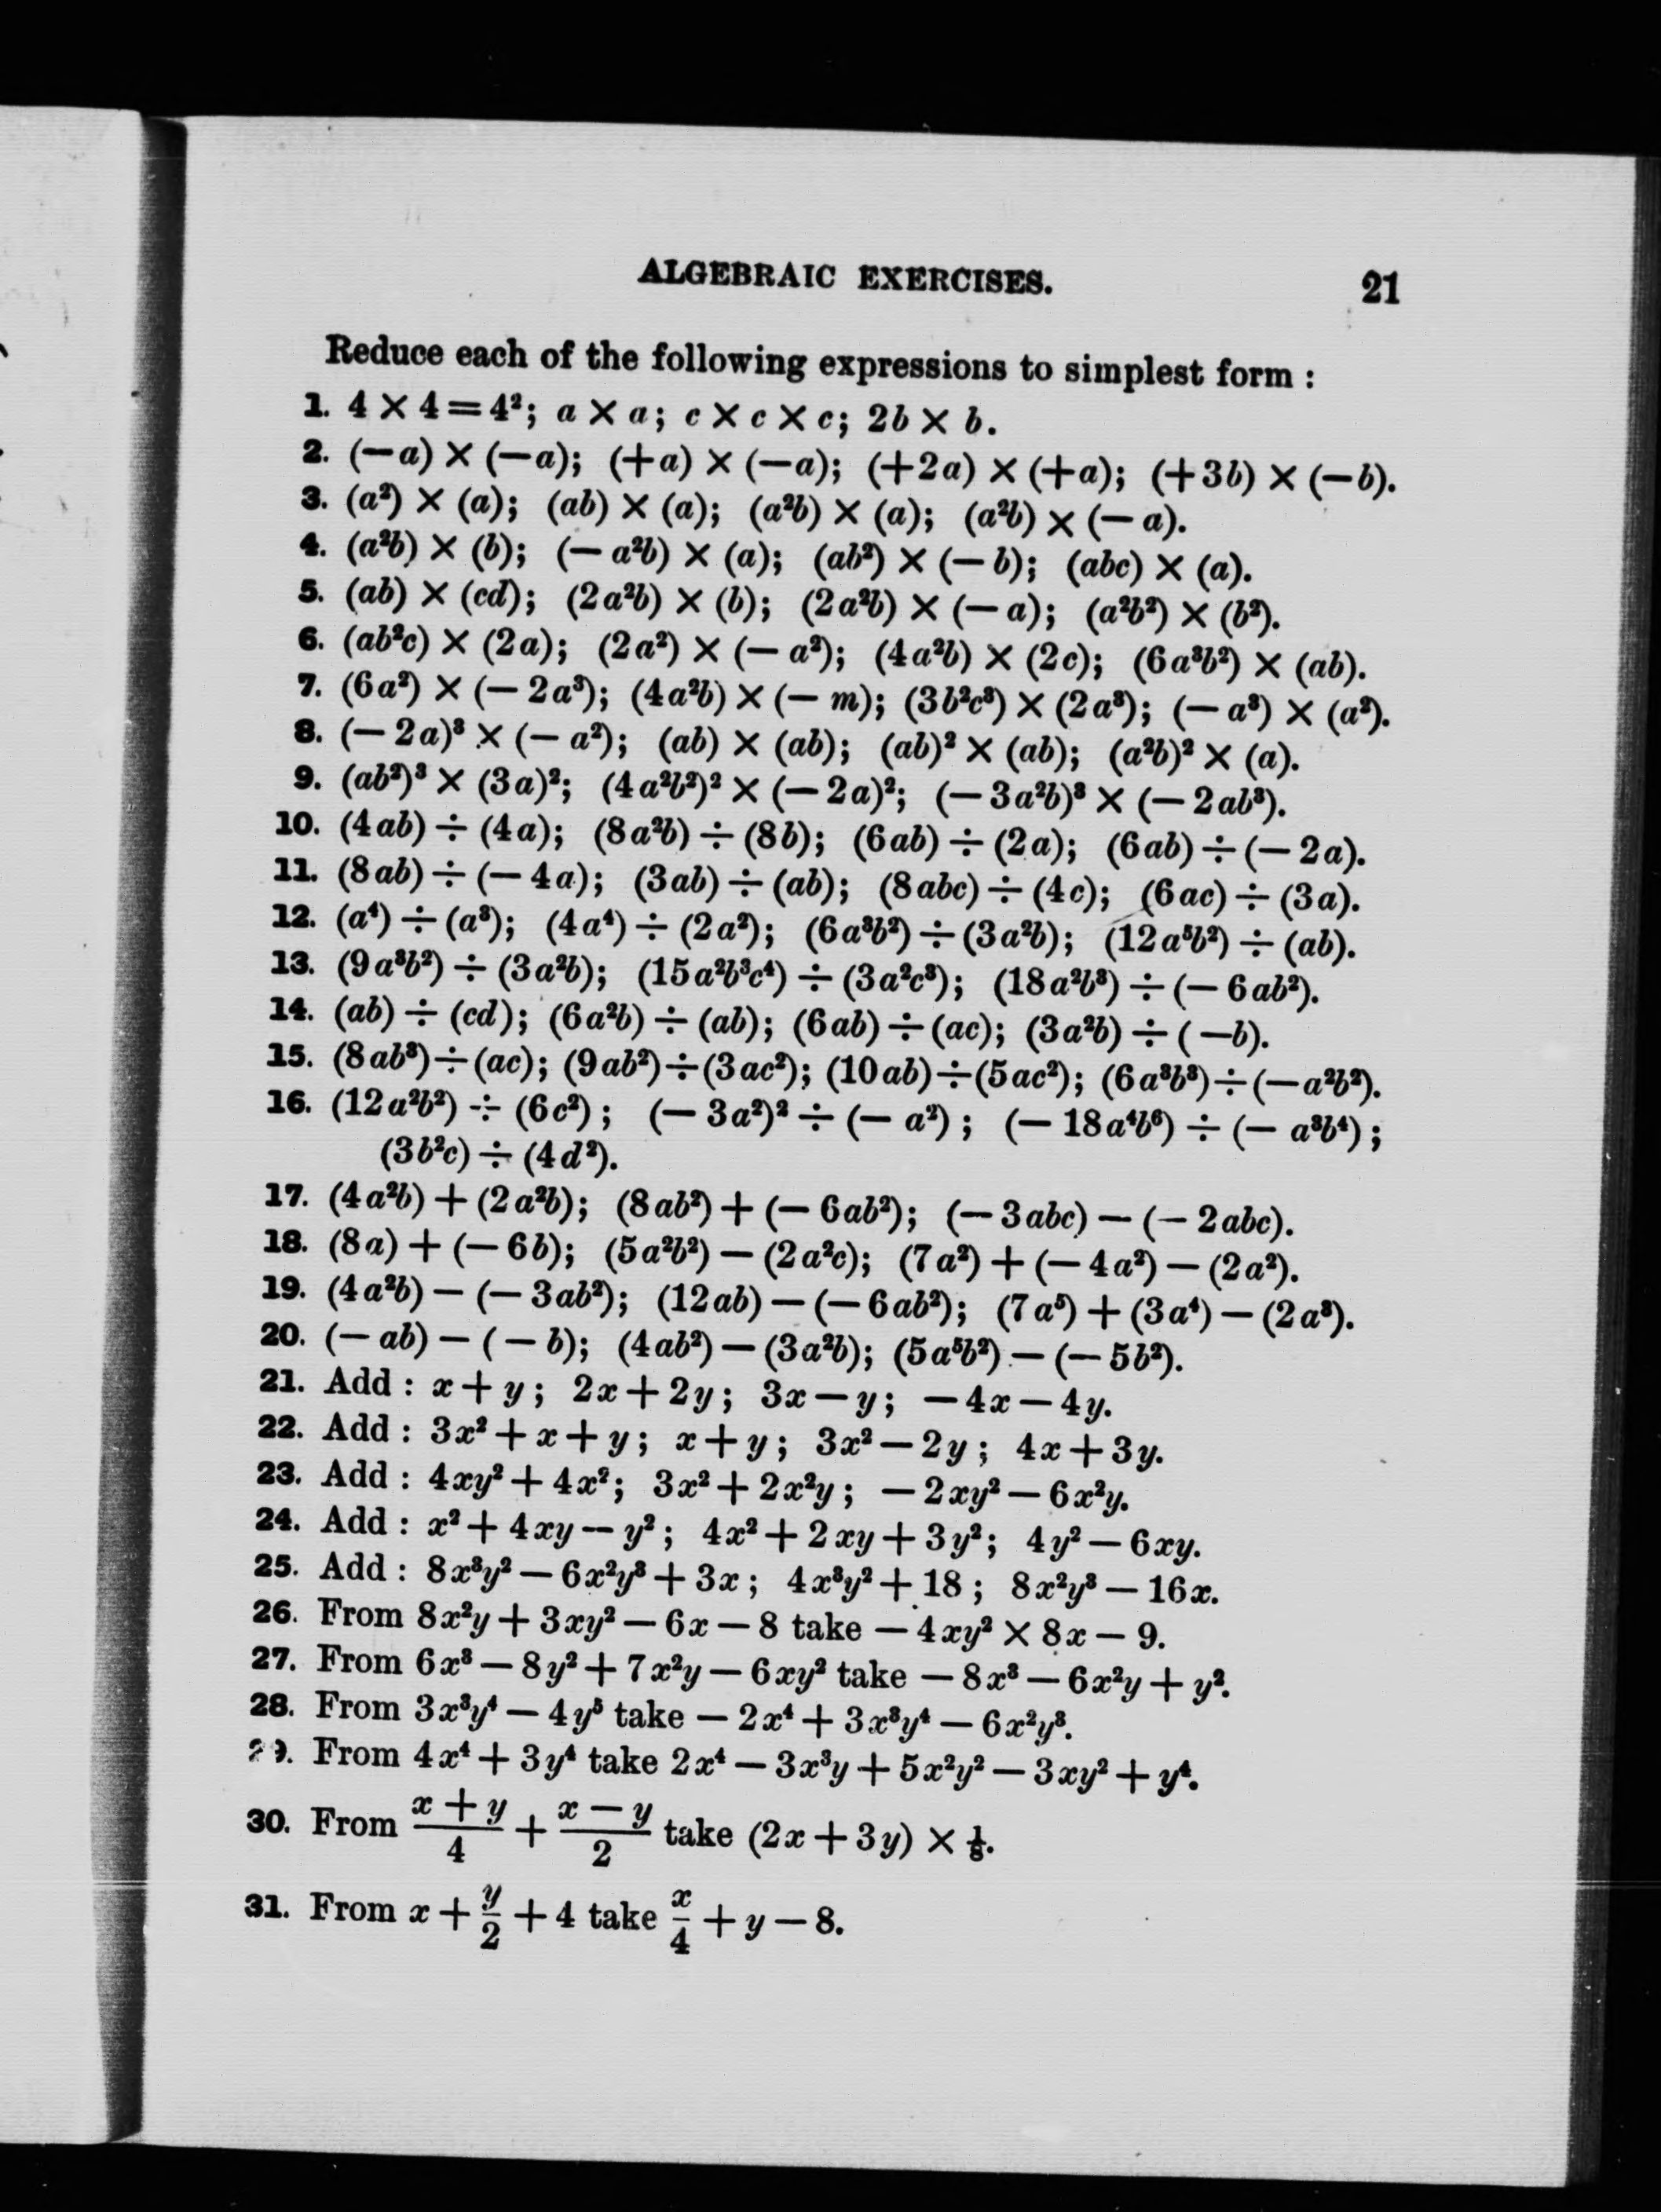 ALGEBRAIC EXERCISES. 21
Reduce each of the following expressions to simplest form :
1. 4 × 4 = 4²; a × a; c × c × c; 2b × b.
2. (−a) × (−a); (+a) × (−a); (+2a) × (+a); (+3b) × (−b).
3. (a²) × (a); (ab) × (a); (a²b) × (a); (a²b) × (− a).
4. (a²b) × (b); (− a²b) × (a); (ab²) × (− b); (abc) × (a).
5. (ab) × (cd); (2a²b) × (b); (2a²b) × (− a); (a²b²) × (b²).
6. (ab²c) × (2a); (2a²) × (− a²); (4a²b) × (2c); (6a³b²) × (ab).
7. (6a²) × (− 2a³); (4a²b) × (− m); (3b²c³) × (2a³); (− a³) × (a²).
8. (− 2a)³ × (− a²); (ab) × (ab); (ab)² × (ab); (a²b)² × (a).
9. (ab²)³ × (3a)²; (4a²b²)² × (− 2a)²; (− 3a²b)³ × (− 2ab³).
10. (4ab) ÷ (4a); (8a²b) ÷ (8b); (6ab) ÷ (2a); (6ab) ÷ (− 2a).
11. (8ab) ÷ (− 4a); (3ab) ÷ (ab); (8abc) ÷ (4c); (6ac) ÷ (3a).
12. (a⁴) ÷ (a³); (4a⁴) ÷ (2a²); (6a³b²) ÷ (3a²b); (12a⁵b²) ÷ (ab).
13. (9a³b²) ÷ (3a²b); (15a²b³c⁴) ÷ (3a²c³); (18a²b³) ÷ (− 6ab²).
14. (ab) ÷ (cd); (6a²b) ÷ (ab); (6ab) ÷ (ac); (3a²b) ÷ (−b).
15. (8ab³) ÷ (ac); (9ab²) ÷ (3ac²); (10ab) ÷ (5ac²); (6a³b³) ÷ (−a²b²).
16. (12a²b²) ÷ (6c²); (− 3a²)² ÷ (− a²); (− 18a⁴b⁶) ÷ (− a³b⁴);
(3b²c) ÷ (4d²).
17. (4a²b) + (2a²b); (8ab²) + (− 6ab²); (− 3abc) − (− 2abc).
18. (8a) + (− 6b); (5a²b²) − (2a²c); (7a²) + (− 4a²) − (2a²).
19. (4a²b) − (− 3ab²); (12ab) − (− 6ab²); (7a⁵) + (3a⁴) − (2a³).
20. (− ab) − (− b); (4ab²) − (3a²b); (5a⁵b²) − (− 5b²).
21. Add : x + y; 2x + 2y; 3x − y; − 4x − 4y.
22. Add : 3x² + x + y; x + y; 3x² − 2y; 4x + 3y.
23. Add : 4xy² + 4x²; 3x² + 2x²y; − 2xy² − 6x²y.
24. Add : x² + 4xy − y²; 4x² + 2xy + 3y²; 4y² − 6xy.
25. Add : 8x³y² − 6x²y³ + 3x; 4x³y² + 18; 8x²y³ − 16x.
26. From 8x²y + 3xy² − 6x − 8 take − 4xy² × 8x − 9.
27. From 6x³ − 8y² + 7x²y − 6xy² take − 8x³ − 6x²y + y².
28. From 3x³y⁴ − 4y⁵ take − 2x⁴ + 3x³y⁴ − 6x²y³.
29. From 4x⁴ + 3y⁴ take 2x⁴ − 3x³y + 5x²y² − 3xy² + y⁴.
30. From (x + y)/4 + (x − y)/2 take (2x + 3y) × ⅛.
31. From x + y/2 + 4 take x/4 + y − 8.